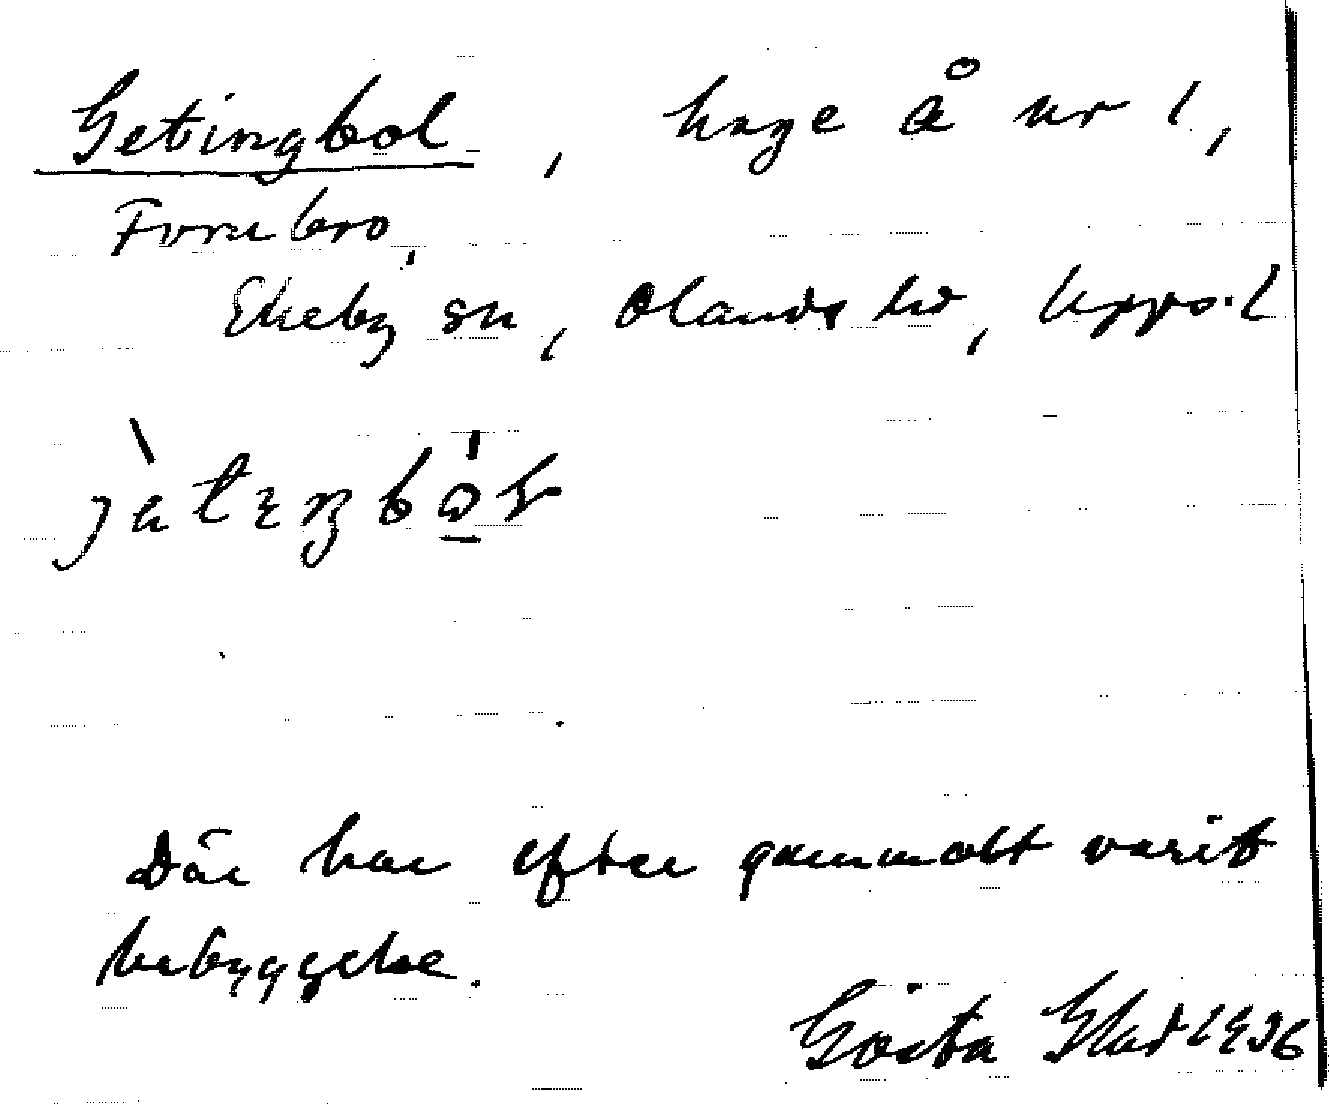 Getingbol, hage å nr 1,
Fornbro,
Ekeby sn, Olands hd, Upps. l
Där har efter gammalt varit
bebyggelse.
Gösta Glad 1936